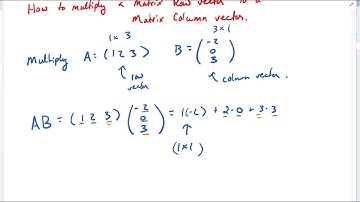 How to multiply a Matrix Row vector to a
Matrix Column vector.
1 x 3 3 x 1
Multiply A = (1 2 3) B = (-2
0
3)
row
vector
column vector.
AB = (1 2 3) (-2
0
3) = 1(-2) + 2·0 + 3·3
(1x1)